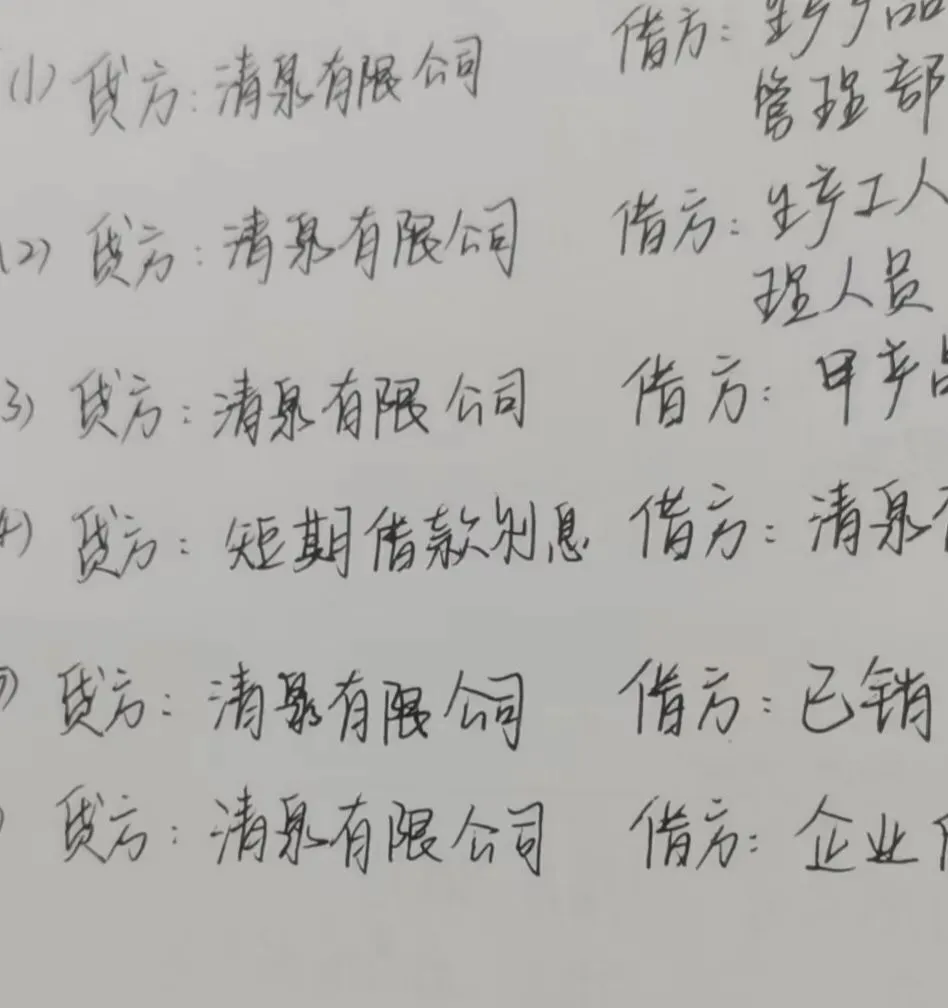 (1) 贷方: 清泉有限公司 借方: 生产产品
管理部
(2) 贷方: 清泉有限公司 借方: 生产工人
理人员
3) 贷方: 清泉有限公司 借方: 甲产品
4) 贷方: 短期借款利息 借方: 清泉
) 贷方: 清泉有限公司 借方: 已销
) 贷方: 清泉有限公司 借方: 企业